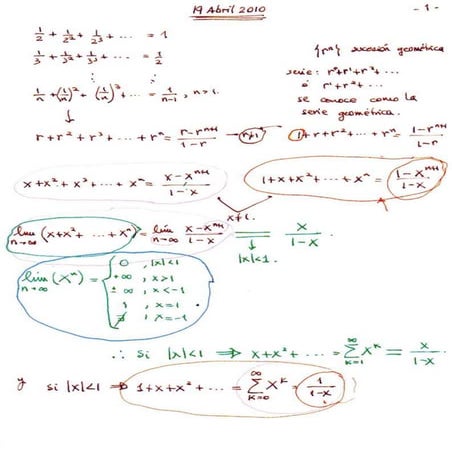 19 Abril 2010 - 1 -
1/2 + 1/2² + 1/2³ + ... = 1
1/3 + 1/3² + 1/3³ + ... = 1/2
⋮ ⋮
1/n + (1/n)² + (1/n)³ + ... = 1/(n-1), n>1.
↓
r + r² + r³ + ... + rⁿ = (r - rⁿ⁺¹)/(1-r) → r≠1
{rⁿ} sucesión geométrica
serie: r⁰+r¹+r²+...
ó r¹+r²+...
se conoce como la
serie geométrica.
1+r+r²+...+rⁿ = (1-rⁿ⁺¹)/(1-r)
x+x²+x³+...+xⁿ = (x-xⁿ⁺¹)/(1-x)
1+x+x²+...+xⁿ = (1-xⁿ⁺¹)/(1-x)
x≠1.
lim n→∞ (x+x²+...+xⁿ) = lim n→∞ (x-xⁿ⁺¹)/(1-x) = x/(1-x)
↓
|x|<1.
lim n→∞ (xⁿ) = {
0 , |x|<1
+∞ , x>1
±∞ , x<-1
1 , x=1
∄ , x=-1
∴ si |x|<1 ⇒ x+x²+... = ∞ Σ k=1 xᵏ = x/(1-x)
y si |x|<1 ⇒ 1+x+x²+... = ∞ Σ k=0 xᵏ = 1/(1-x)